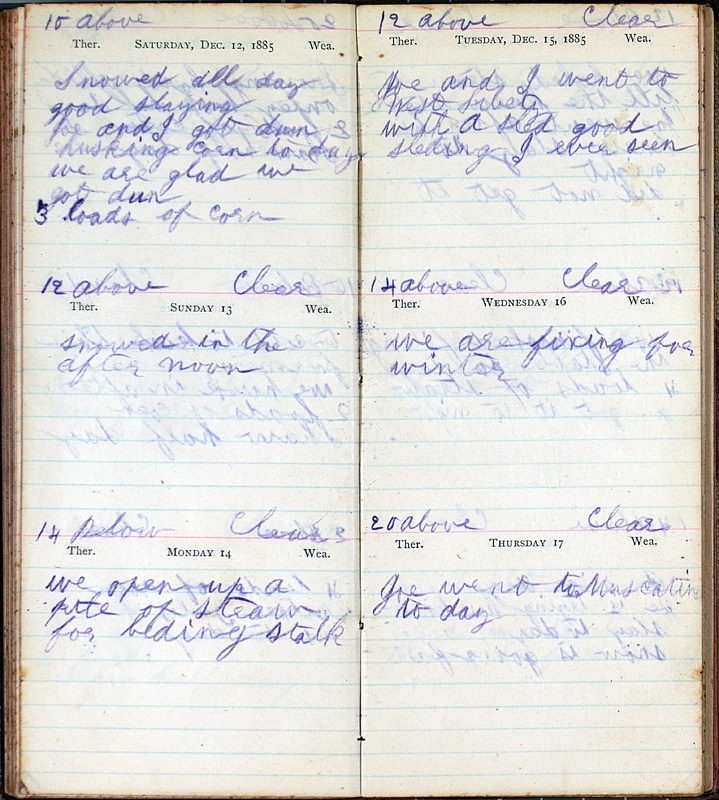 10 above
Ther. SATURDAY, DEC. 12, 1885 Wea.
Snowed all day
good slaying
Joe and I got dun
husking corn to day
we are glad we
got dun
3 loads of corn
12 above Clear
Ther. SUNDAY 13 Wea.
snowed in the
after noon
14 Below Clear
Ther. MONDAY 14 Wea.
we open up a
of steaw
for beding stalk
12 above Clear
Ther. TUESDAY, DEC. 15, 1885 Wea.
Joe and I went to
West Libety
with a sled good
sleding I ever seen
14 above Clear
Ther. WEDNESDAY 16 Wea.
we are fixing for
winter
20 above Clear
Ther. THURSDAY 17 Wea.
Joe went to Muscatin
to day